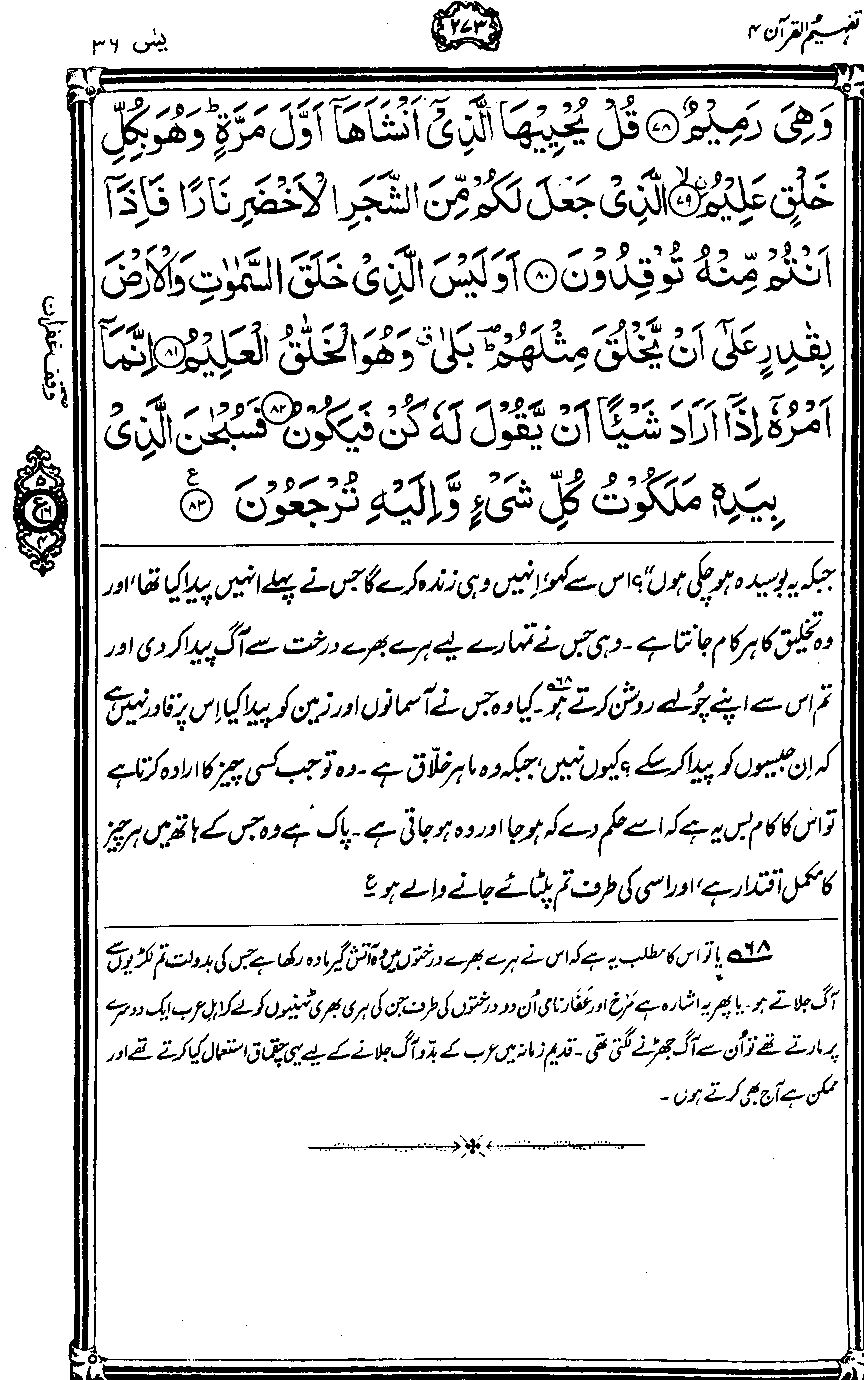 تفہیم القرآن ۴
۲۷۳
یٰس ۳۶
وَهِىَ رَمِيْمٌ ﴿۷۸﴾ قُلْ يُحْيِيْهَا الَّذِىْٓ اَنْشَاَهَآ اَوَّلَ مَرَّةٍ ؕ وَهُوَ بِكُلِّ
خَلْقٍ عَلِيْمُ ۨ ﴿۷۹﴾ ۙ الَّذِىْ جَعَلَ لَكُمْ مِّنَ الشَّجَرِ الْاَخْضَرِ نَارًا فَاِذَآ
اَنْتُمْ مِّنْهُ تُوْقِدُوْنَ ﴿۸۰﴾ اَوَلَيْسَ الَّذِىْ خَلَقَ السَّمٰوٰتِ وَالْاَرْضَ
بِقٰدِرٍ عَلٰٓى اَنْ يَّخْلُقَ مِثْلَهُمْ ؕ بَلٰى ۗ وَهُوَ الْخَلّٰقُ الْعَلِيْمُ ﴿۸۱﴾ اِنَّمَآ
اَمْرُهٗٓ اِذَآ اَرَادَ شَيْـًٔا اَنْ يَّقُوْلَ لَهٗ كُنْ فَيَكُوْنُ ﴿۸۲﴾ فَسُبْحٰنَ الَّذِىْ
بِيَدِهٖ مَلَكُوْتُ كُلِّ شَىْءٍ وَّاِلَيْهِ تُرْجَعُوْنَ ﴿۸۳﴾ ع
وقف غفران
۵
ع
۴
جبکہ یہ بوسیدہ ہو چکی ہوں“؟ اس سے کہو، اِنہیں وہی زندہ کرے گا جس نے پہلے انہیں پیدا کیا تھا، اور
وہ تخلیق کا ہر کام جانتا ہے۔ وہی جس نے تمہارے لیے ہرے بھرے درخت سے آگ پیدا کر دی اور
تم اس سے اپنے چُولہے روشن کرتے ہو۶۸۔ کیا وہ جس نے آسمانوں اور زمین کو پیدا کیا اِس پر قادر نہیں ہے
کہ اِن جیسوں کو پیدا کر سکے؟ کیوں نہیں، جبکہ وہ ماہر خلّاق ہے۔ وہ تو جب کسی چیز کا ارادہ کرتا ہے
تو اس کا کام بس یہ ہے کہ اسے حکم دے کہ ہو جا اور وہ ہو جاتی ہے۔ پاک ہے وہ جس کے ہاتھ میں ہر چیز
کا مکمل اقتدار ہے، اور اسی کی طرف تم پلٹائے جانے والے ہو ع
۶۸ یا تو اس کا مطلب یہ ہے کہ اس نے ہرے بھرے درختوں میں وہ آتش گیر مادہ رکھا ہے جس کی بدولت تم لکڑیوں سے
آگ جلاتے ہو۔ یا پھر یہ اشارہ ہے مَرْخ اور عَفَار نامی اُن دو درختوں کی طرف جن کی ہری بھری ٹہنیوں کو لے کر اہلِ عرب ایک دوسرے
پر مارتے تھے تو اُن سے آگ جھڑنے لگتی تھی۔ قدیم زمانہ میں عرب کے بدّو آگ جلانے کے لیے یہی چقماق استعمال کیا کرتے تھے اور
ممکن ہے آج بھی کرتے ہوں۔